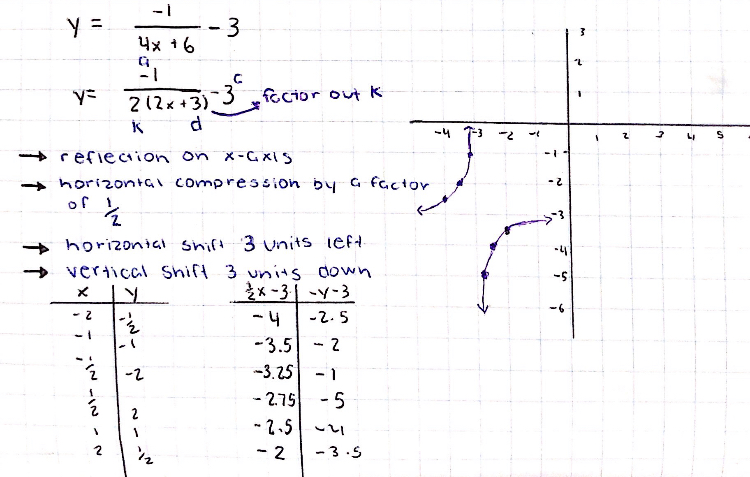 y = -1/(4x + 6) - 3
a
y = -1/(2(2x+3)) - 3 c factor out k
k d
→ reflection on x-axis
→ horizontal compression by a factor
of 1/2
→ horizontal shift 3 units left
→ vertical shift 3 units down
x y
-2 -1/2
-1 -1
-1/2 -2
1/2 2
1 1
2 1/2
1/2x-3 -y-3
-4 -2.5
-3.5 -2
-3.25 -1
-2.75 -5
-2.5 -4
-2 -3.5
3
2
1
-4 -3 -2 -1 1 2 3 4 5
-1
-2
-3
-4
-5
-6